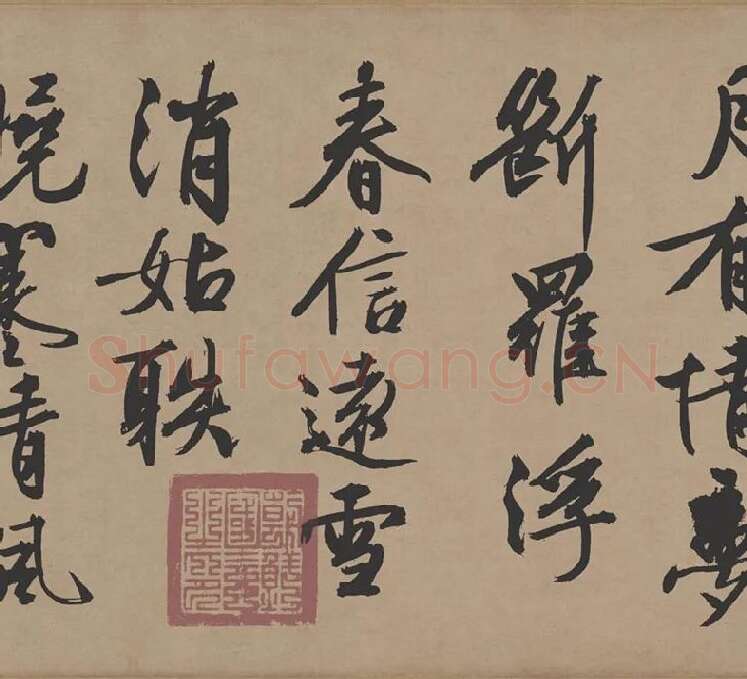 月有情夢
斷羅浮
春信遠雪
消姑
曉寒風
Shufawang.CN